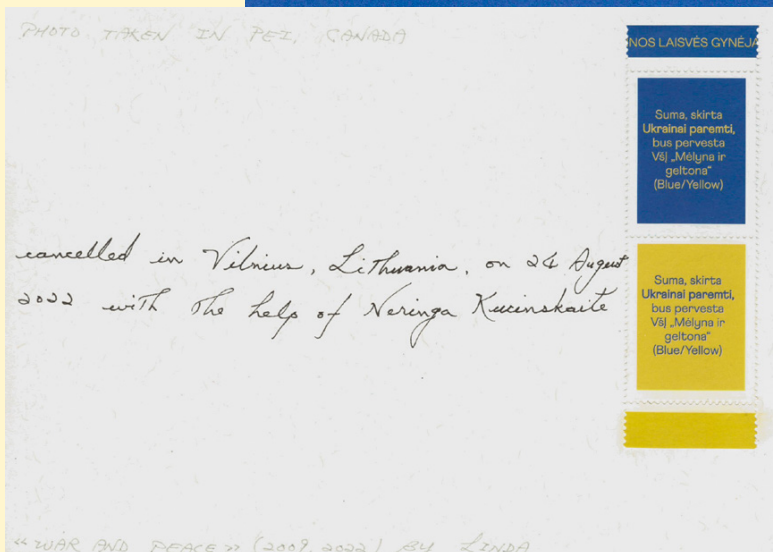 PHOTO TAKEN IN PEI, CANADA
NOS LAISVĖS GYNĖJA
Suma, skirta
Ukrainai paremti,
bus pervesta
VšĮ „Mėlyna ir
geltona“
(Blue/Yellow)
cancelled in Vilnius, Lithuania, on 24 August
2022 with the help of Neringa Kucinskaite
Suma, skirta
Ukrainai paremti,
bus pervesta
VšĮ „Mėlyna ir
geltona“
(Blue/Yellow)
«WAR AND PEACE» (2009, 2022) BY LINDA